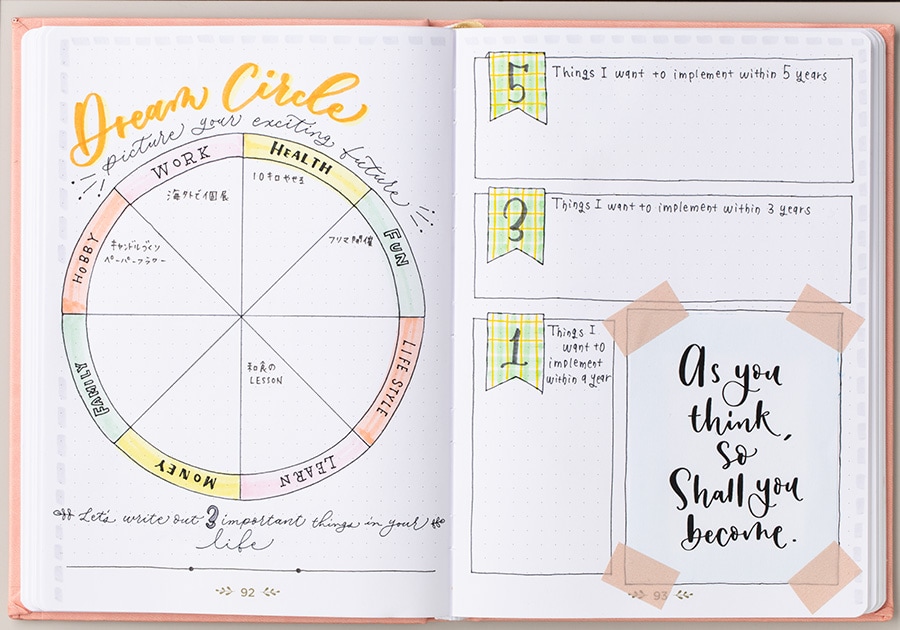 Dream Circle
picture your exciting future
WORK
HEALTH
FUN
LIFE STYLE
LEARN
MONEY
FAMILY
HOBBY
海外で個展
10キロやせる
フリマ開催
和食の
LESSON
キャンドルづくり
ペーパーフラワー
Let's write out 3 important things in your
life
92
5
Things I want to implement within 5 years
3
Things I want to implement within 3 years
1
Things I
want to
implement
within a year
As you
think,
so
Shall you
become.
93